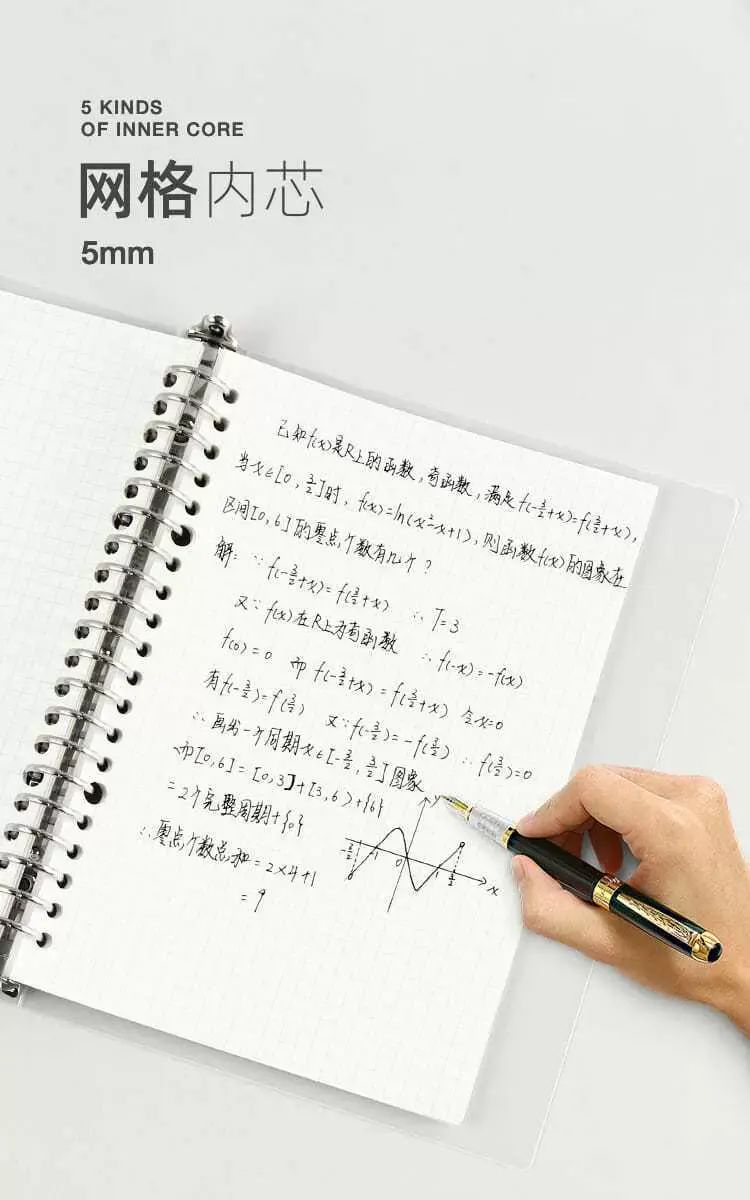 5 KINDS
OF INNER CORE
网格内芯
5mm
已知f(x)是R上的函数,奇函数,满足f(-3/2+x)=f(3/2+x),
当x∈[0,3/2]时,f(x)=ln(x²-x+1),则函数f(x)的图象在
区间[0,6]的零点个数有几个?
解:∵f(-3/2+x)=f(3/2+x) ∴T=3
又∵f(x)在R上为奇函数 ∴f(-x)=-f(x)
f(0)=0 而f(-3/2+x)=f(3/2+x) 令x=0
有f(-3/2)=f(3/2) 又∵f(-3/2)=-f(3/2) ∴f(3/2)=0
∴画出一个周期x∈[-3/2,3/2]图象
而[0,6]=[0,3]+[3,6)+{6}
=2个完整周期+{0}
∴零点个数总和=2×4+1
=9
y
-3/2 -1 0 1 3/2 x